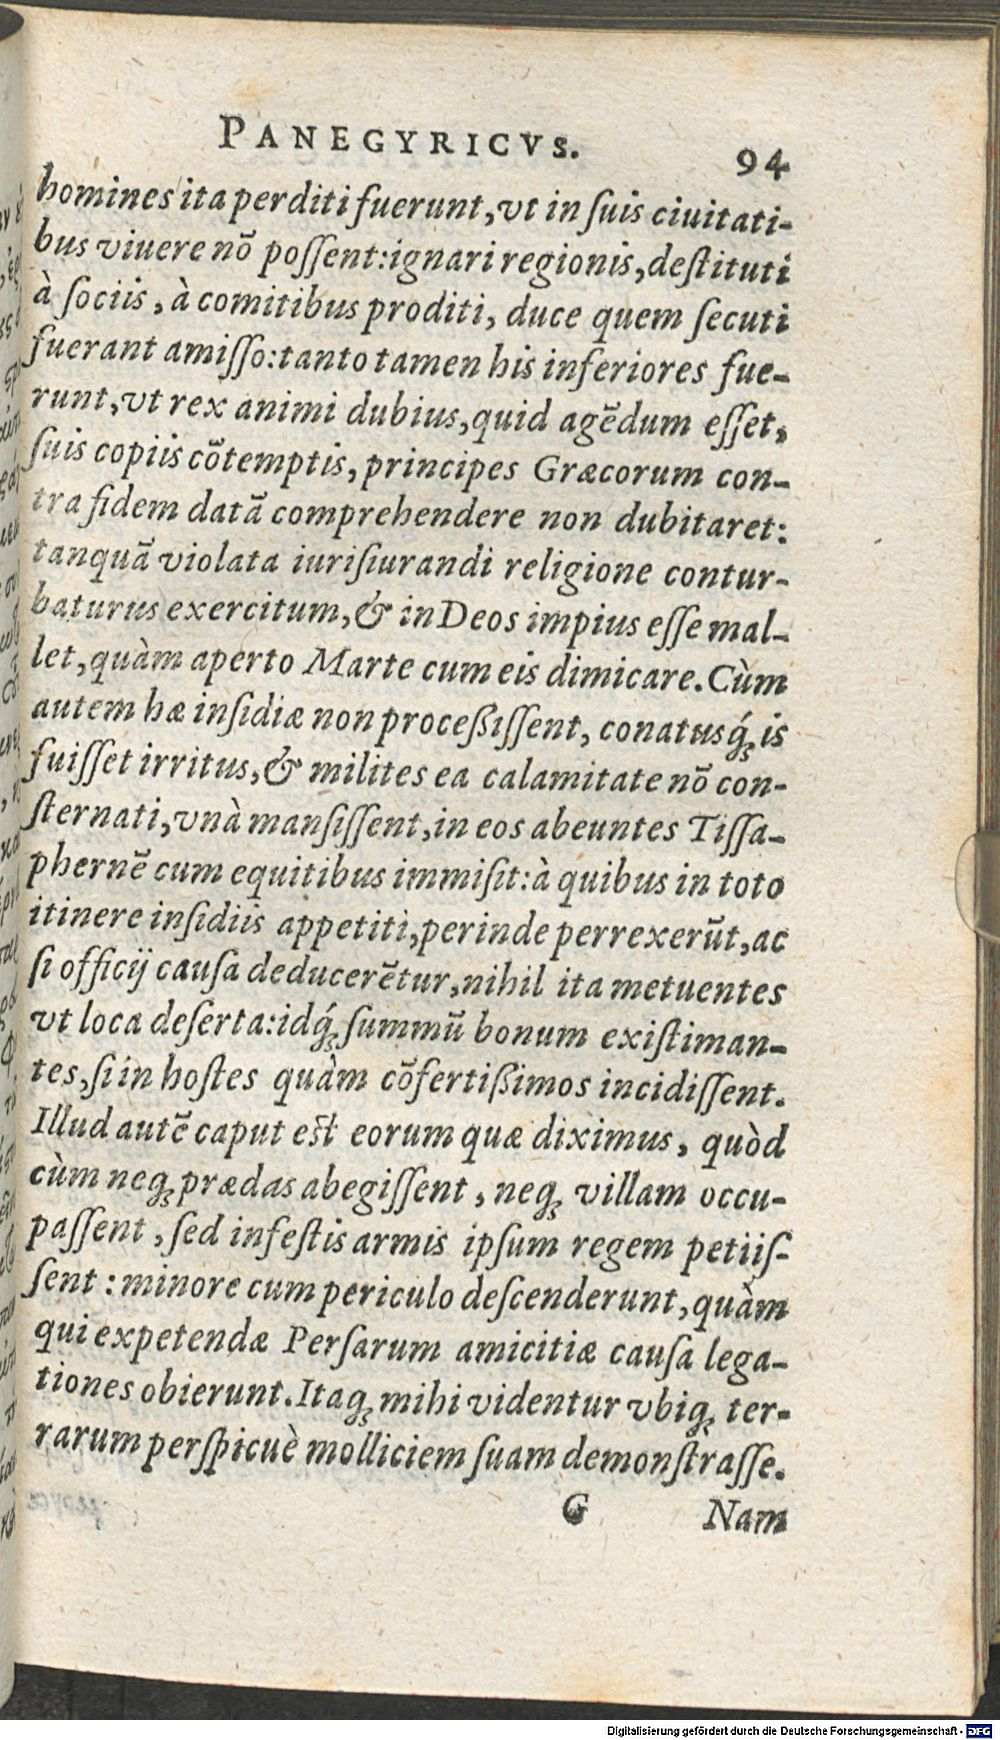 PANEGYRICVS.
94
homines ita perditi fuerunt, vt in ſuis ciuitati-
bus viuere nō poſſent: ignari regionis, deſtituti
à ſociis, à comitibus proditi, duce quem ſecuti
fuerant amiſſo: tanto tamen his inferiores fue-
runt, vt rex animi dubius, quid agēdum eſſet,
ſuis copiis cōtemptis, principes Græcorum con-
tra fidem datā comprehendere non dubitaret:
tanquā violata iuriſiurandi religione contur-
baturus exercitum, & in Deos impius eſſe mal-
let, quàm aperto Marte cum eis dimicare. Cùm
autem hæ inſidiæ non proceßiſſent, conatusq́ꝫ is
fuiſſet irritus, & milites ea calamitate nō con-
ſternati, vnà manſiſſent, in eos abeuntes Tiſſa-
phernē cum equitibus immiſit: à quibus in toto
itinere inſidiis appetiti, perinde perrexerūt, ac
ſi officij cauſa deducerētur, nihil ita metuentes
vt loca deſerta: idq́ꝫ ſummū bonum exiſtiman-
tes, ſi in hoſtes quàm cōfertißimos incidiſſent.
Illud autē caput eſt eorum quæ diximus, quòd
cùm neqꝫ prædas abegiſſent, neqꝫ villam occu-
paſſent, ſed infeſtis armis ipſum regem petiiſ-
ſent: minore cum periculo deſcenderunt, quàm
qui expetendæ Perſarum amicitiæ cauſa lega-
tiones obierunt. Itaqꝫ mihi videntur vbiqꝫ ter-
rarum perſpicuè molliciem ſuam demonſtraſſe.
G Nam
Digitalisierung gefördert durch die Deutsche Forschungsgemeinschaft - DFG